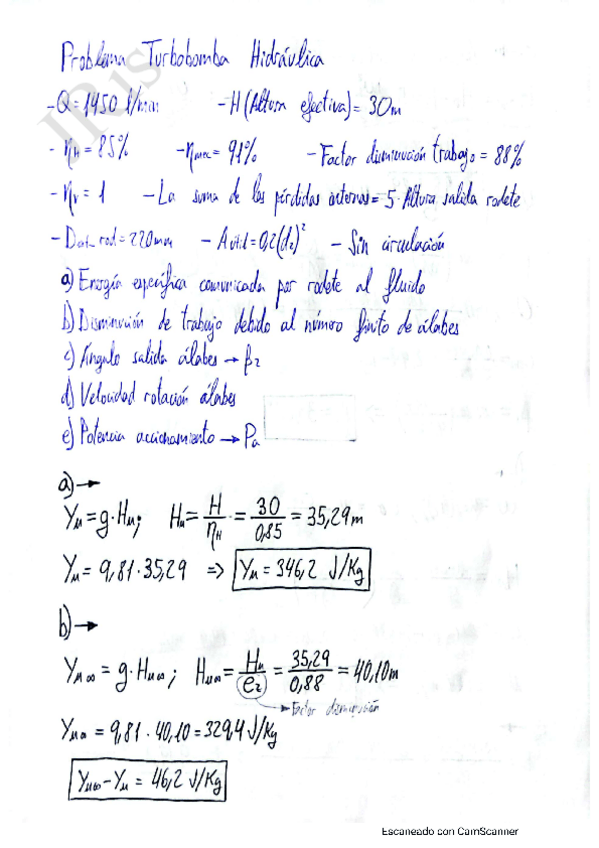 Problema Turbobomba Hidráulica
- Q = 1450 l/min - H (Altura efectiva) = 30m
- ηH = 85% - ηmec = 91% - Factor disminución trabajo = 88%
- ηv = 1 - La suma de las pérdidas internas = 5 Altura salida rodete
- rod = 220mm - A útil = 0,2(d₂)² - Sin circulación
a) Energía específica comunicada por rodete al fluido
b) Disminución de trabajo debido al número finito de álabes
c) Ángulo salida álabes → β₂
d) Velocidad rotación álabes
e) Potencia accionamiento → Pa
a) →
Yu = g · Hu; Hu = H/ηH = 30/0,85 = 35,29m
Yu = 9,81 · 35,29 => Yu = 346,2 J/Kg
b) →
Yu∞ = g · Hu∞; Hu∞ = Hu/e₂ = 35,29/0,88 = 40,10m
→ Factor disminución
Yu∞ = 9,81 · 40,10 = 329,4 J/Kg
Yu∞ - Yu = 46,2 J/Kg
JRus
Escaneado con CamScanner